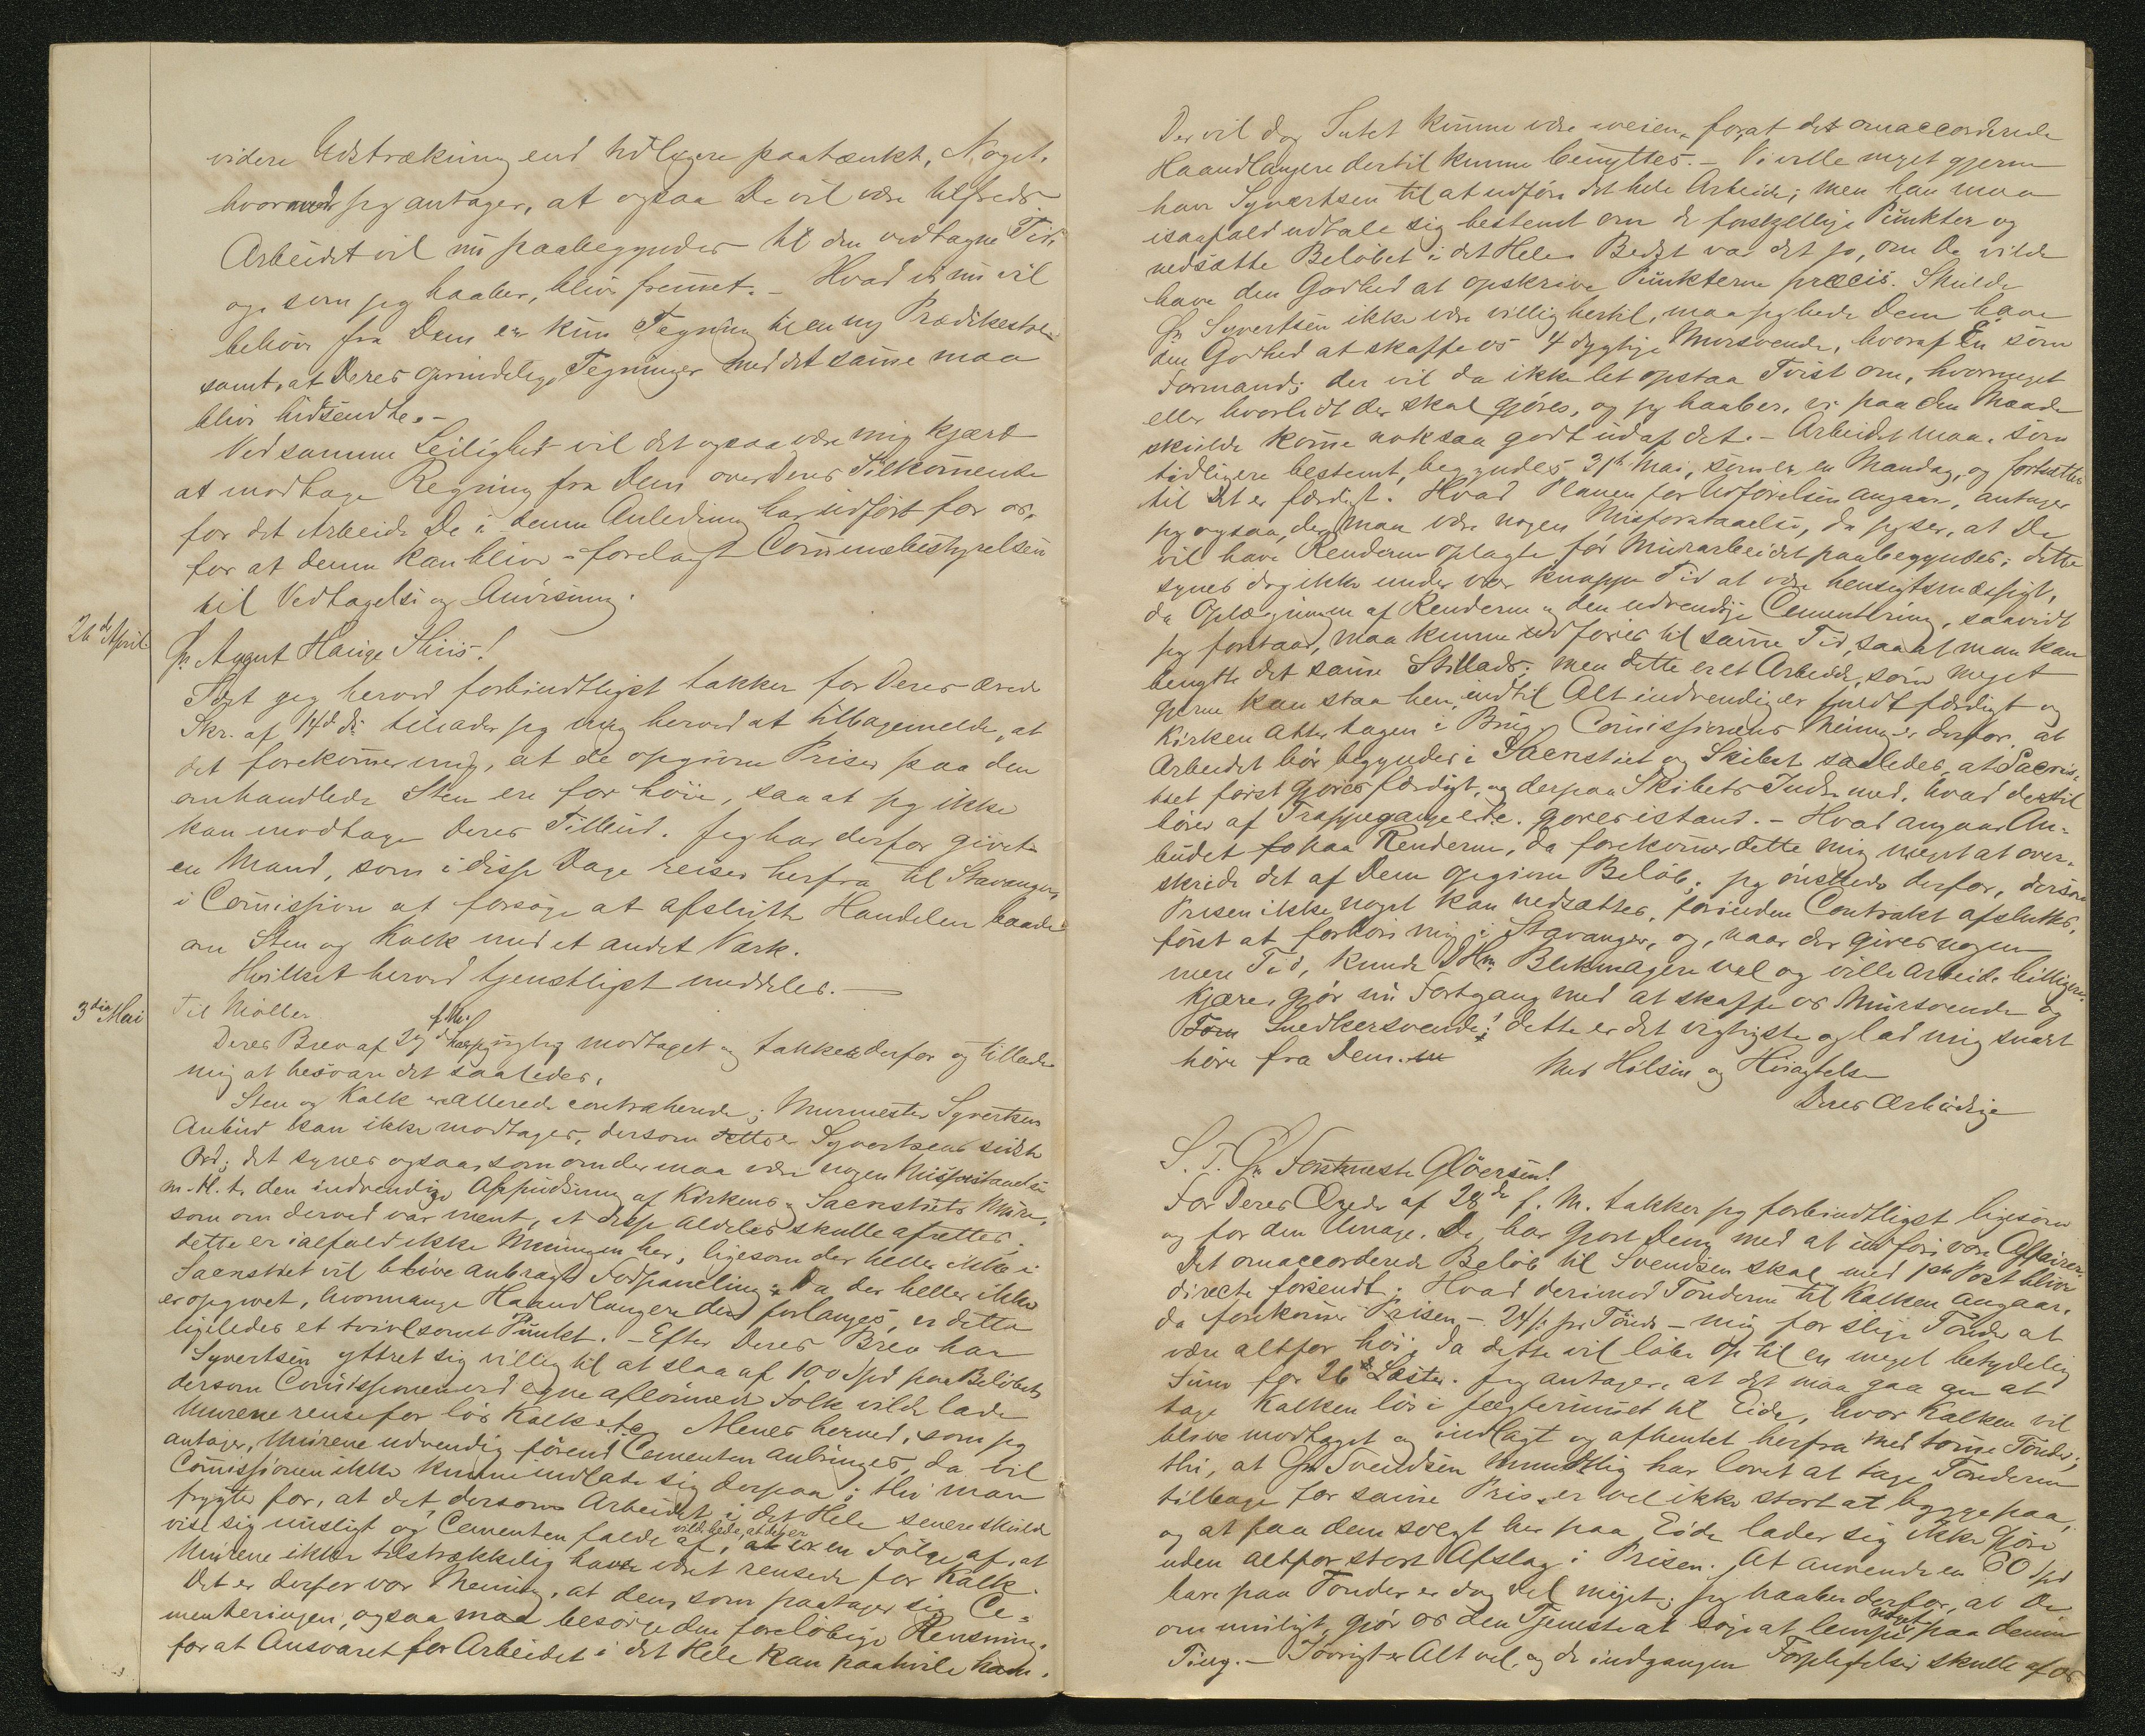 videre Udstrækning end tidligere paatænkt, Noget,
hvormed jeg antager, at ogsaa De vil være tilfreds
Arbeidet vil nu paabegyndes til den vedtagne Tid,
og, som jeg haaber, blive fremmet. – Hvad vi nu vil
behöve fra Dem er kun Tegning til en ny Prædikestol
samt, at Deres oprindelige Tegninger med det samme maa
blive hidsendte. –
Ved samme Leilighed vil det ogsaa være mig kjært
at modtage Regning fra Dem over Deres Tilkommende
for det Arbeide De i denne Anledning har udfört for os,
for at denne kan blive forelagt Communebestyrelsen
til Vedtagelse og Anvisning.
26de April
Hr. Agent Hauge Thiis!
Idet jeg herved forbindtligst takker for Deres ærede
Skr. af 14de ds. tillader jeg mig herved at tilbagemelde, at
det forekommer mig, at de opgivne Priser paa den
omhandlede Sten ere for höie, saa at jeg ikke
kan modtage Deres Tilbud. Jeg har derfor givet
en Mand, som i disse Dage reiser herfra til Stavanger,
i Commission at forsöge at afslutte Handelen baade
om Sten og Kalk med et andet Værk.
Hvilket herved tjenstligst meddeles. —
3die Mai
Til Möller.
Deres Brev af 27de f. M. har jeg rigtig modtaget og takker derfor og tillader
mig at besvare det saaledes.
Sten og Kalk er allerede contraherede; Murmester Syvertsens
Anbud kan ikke modtages, dersom dette er Syvertsens sidste
Ord; det synes ogsaa, som om der maa være nogen Misforstaaelse
m. H. t. den indvendige Afpudsning af Kirkens og Sacristiets Mure,
som om derved var ment, at disse aldeles skulle afrettes;
dette er ialfald ikke Meningen her, ligesom der heller ikke i
Sacristiet vil blive anbragt Fodpaneling; Da der heller ikke
er opgivet, hvormange Haandlangere der forlanges, er dette
ligeledes et tvivlsomt Punkt. – Efter Deres Brev har
Syvertsen yttret sig villig til at slaa af 100 Spd paa Belöbet,
dersom Commissionen ved egne aflönnede Folk vilde lade
Murene rense for lös Kalk etc. Menes herved, som jeg
antager, Murene udvendig förend Cementen anbringes, da vil
Commissionen ikke kunne indlade sig derpaa; thi man
frygter for, at det dersom Arbeidet i det Hele senere skulde
vise sig usligt og Cementen falde af, vilde hede, at det er en Fölge af, at
Murene ikke tilstrækkelig have været rensede for Kalk.
Det er derfor vor Mening, at den, som paatager sig Ce-
menteringen, ogsaa maa besörge den forelöbige Rensning,
for at Ansvaret for Arbeidet i det Hele kan paahvile ham.
Der vil dog Intet kunne være iveien, for at det omaccorderede
Haandlangere dertil kunne benyttes. – Vi ville meget gjerne
have Syvertsen til at udföre det hele Arbeide; men han maa
isaafald udtale sig bestemt om de forskjellige Punkter og
nedsætte Belöbet i det Hele. Bedst var det jo, om De vilde
have den Godhed at opskrive Punkterne præcis. Skulde
Hr. Syvertsen ikke være villig hertil, maa jeg bede Dem have
den Godhed at skaffe os 4 dygtige Mursvende, hvoraf Én som
Formand; der vil da ikke let opstaa Tvist om, hvormeget
eller hvorlidt der skal gjöres, og jeg haaber, vi paa den Maade
skulde komme nok saa godt ud af det. – Arbeidet maa, som
tidligere bestemt, begyndes 31te Mai, som er en Mandag, og fortsættes
til det er færdigt. Hvad Planen for Udförelsen angaar, antager
jeg ogsaa, der maa være nogen Misforstaaelse, da jeg ser, at De
vil have Renderne oplagte för Murarbeidet paabegyndes; dette
synes dog ikke under vor knappe Tid at være hensigtsmæssigt,
da Oplægningen af Renderne og den udvendige Cementering, saavidt
jeg forstaar, maa kunne udföres til samme Tid, saa at man kan
benytte det samme Stillads; men dette er et Arbeide, som meget
gjerne kan staa hen, indtil Alt indvendig er fuldt færdigt og
Kirken atter tagen i Brug. Commissionens Mening er derfor, at
Arbeidet bör begyndes i Sacristiet og Skibet saaledes, at Sacris-
tiet först gjöres færdigt, og derpaa Skibets Indre med, hvad dertil
hörer af Trappegange etc. gjöres istand. – Hvad angaar An-
budet paa Renderne, da forekommer dette mig meget at over-
skride det af Dem opgivne Belöb; jeg önskede derfor, dersom
Prisen ikke noget kan nedsættes, förinden Contrakt afsluttes,
först at forhöre mig i Stavanger, og, naar der gives nogen
mere Tid, kunde DHrr. Blikmagere vel og ville arbeide billigere.
Kjære, gjör nu Fortgang med at skaffe os Mursvende og
Snedkersvende; dette er det vigtigste og lad mig snart
höre fra Dem.
Med Hilsen og Höiagtelse
Deres Ærbödige
S. T. Hr. Forstmester Glöersen!
For Deres Ærede af 28de f. M. takker jeg forbindtligst ligesom
og for den Umage, De har gjort Dem med at udföre vore Affairer.
Det omaccorderede Belöb til Svendsen skal med 1ste Post blive
directe forsendt. Hvad derimod Tönderne til Kalken angaar,
da forekommer Prisen – 24 s. pr Tönde – mig for slige Tönder at
være altfor höi, da dette vil löbe op til en meget betydelig
Sum for 26 Læster. Jeg antager, at det maa gaa an at
tage Kalken lös i Jægterummet til Eide, hvor Kalken vil
blive modtaget og indlagt og afhentet herfra med tomme Tönder;
thi, at Hr. Svendsen mundtlig har lovet at tage Tönderne
tilbage for samme Pris, er vel ikke stort at bygge paa,
og at faa dem solgt her paa Eide lader sig ikke gjöre
uden altfor stort Afslag i Prisen. At anvende en 60 Spd
bare paa Tönder er dog vel meget; jeg haaber derfor, at De
om muligt, gjör os den Tjeneste at söge at lempe noget paa denne
Ting. – Iövrigt er Alt vel, og de indgangne Forpligtelser skulle af os